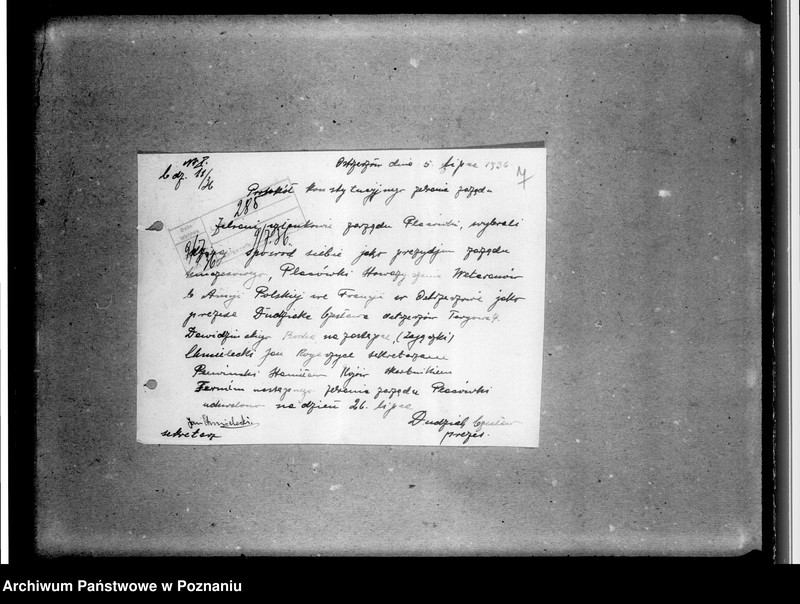 Nr 7.
L dz. 11/36
Ostrzeszów dnia 5 lipca 1936
7
Protokół konstytucyjnego zebrania zarządu
288
Zebrani członkowie zarządu Placówki, wybrali
9/7.36.
spośród siebie jako prezydjum zarządu
tymczasowego, Placówki Stowarzyszenia Weteranów
b Armji Polskiej we Francji w Ostrzeszowie jako
prezesa Dudziaka Czesława Ostrzeszów Targowa 4.
na zastępcę, (Zajączki)
Chmielecki Jan Rogaszyce sekretarzem
Stanisław skarbnikiem
Termin następnego zebrania zarządu Placówki
uchwalono na dzień 26. lipca
Jan Chmielecki
sekretarz
Dudziak Czesław
prezes.
Archiwum Państwowe w Poznaniu